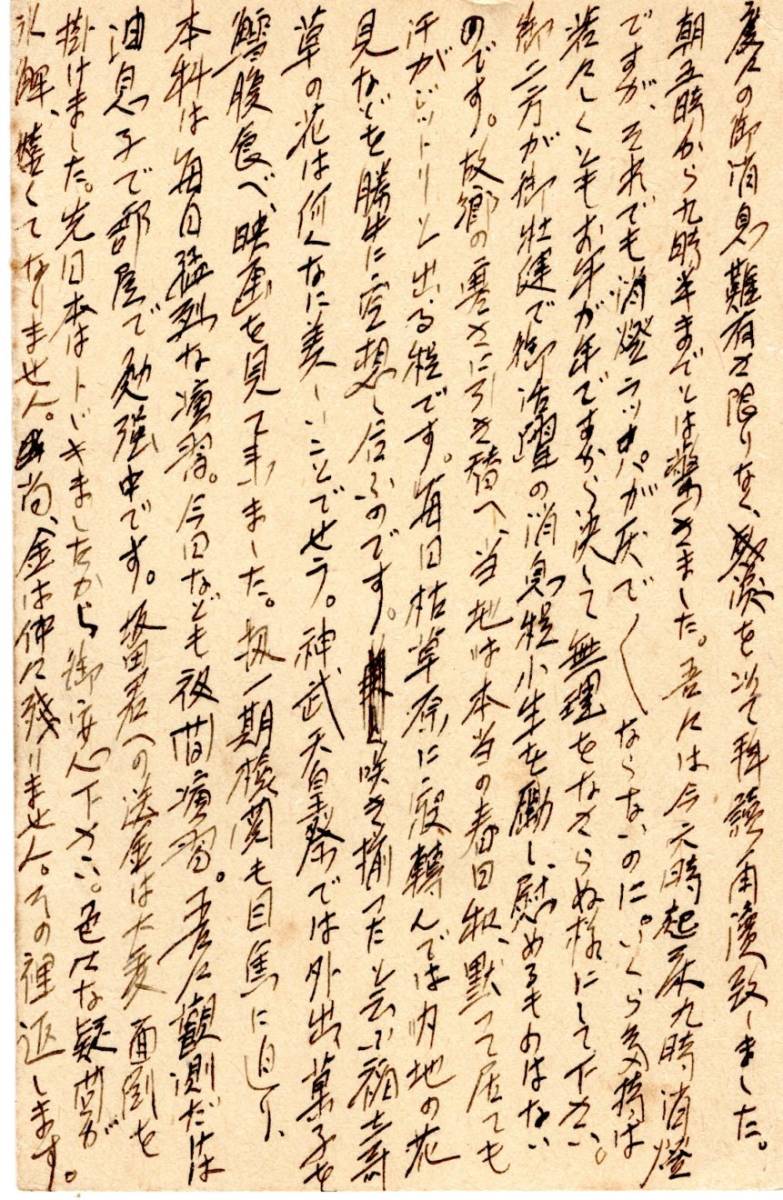 度々の御消息難有さ限りなく、感涙を以て拝読再読致しました。
朝五時から九時半までとは驚きました。吾々は今六時起床九時消燈
ですが、それでも消燈ラッパが厭で〱ならないのに。いくら気持は
若々しくともお年が年ですから決して無理をなさらぬ様にして下さい。
御二方が御壮健で御活躍の消息程小生を励し、慰めるものはない
のです。故郷の寒さに引き替へ、当地は本当の春日和、黙って居ても
汗がジットリと出る程です。毎日枯草原に寝転んでは内地の花
見などを勝手に空想し合ふのです。咲き揃ったと云ふ福寿
草の花は何んなに美しいことでせう。神武天皇祭では外出、菓子を
鱈腹食べ、映画を見て来ました。扨一期検閲も目焦に迫り、
本科は毎日猛烈な演習。今日なども夜間演習。吾々観測だけは
油息子で部屋で勉強中です。坂田君への送金は大変面倒を
掛けました。先日本はトドキましたから御安心下さい。色々な疑問が
氷解、嬉くてなりません。尚、金は仲々残りません。その裡返します。